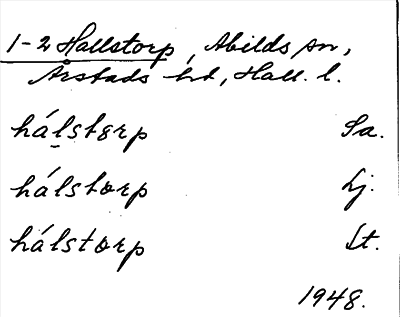 1-2 Hallstorp, Abilds sn,
Årstads hd, Hall. l.
hálstɐrp Sa.
hálstorp Lj.
hálstorp Lt.
1948.